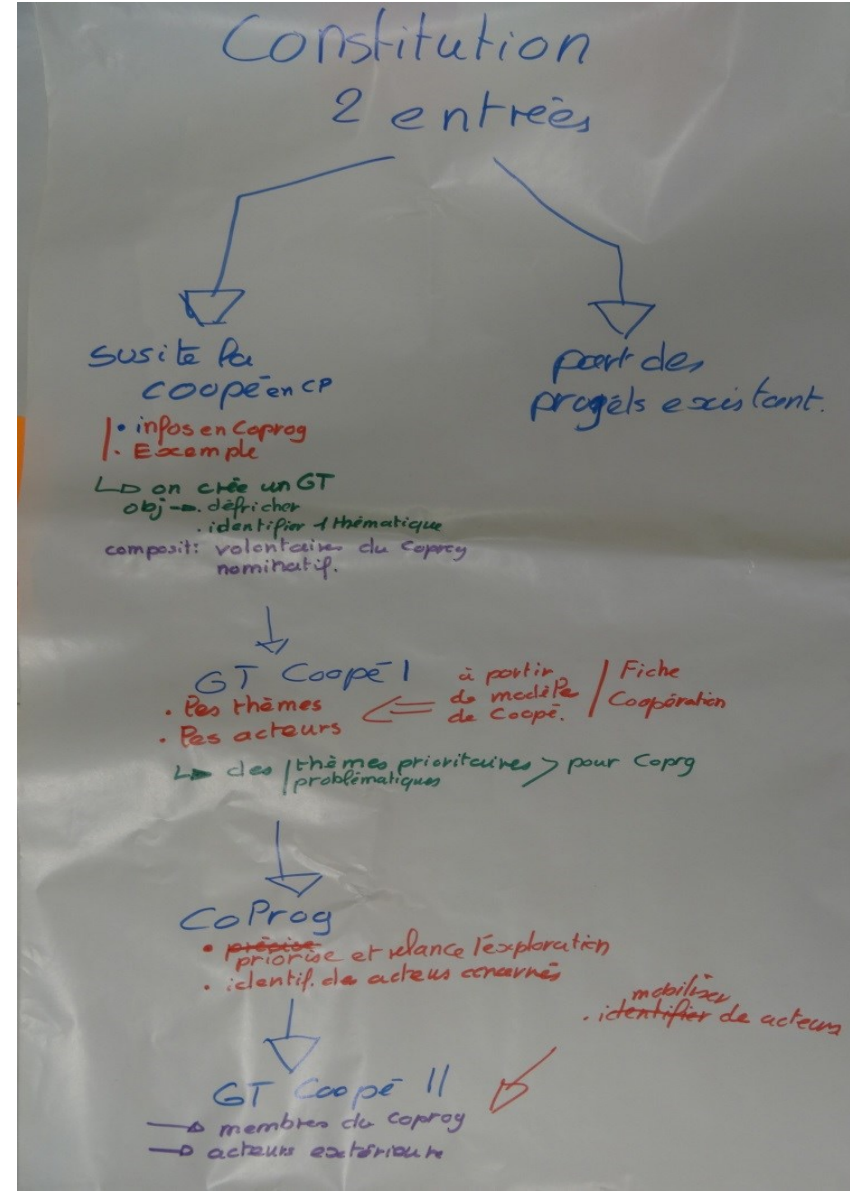 Constitution
2 entrées
susite la
coopé en CP
• infos en Coprog
• Exemple
↳ on crée un GT
obj → . défricher
. identifier 1 thématique
composit: volontaires du Coprog
nominatif.
part des
projets existant.
GT Coopé I
. les thèmes
. les acteurs
à partir
de modèle
de Coopé.
Fiche
Coopération
↳ des thèmes prioritaires > pour Coprg
problématiques
CoProg
• précise
priorise et relance l'exploration
. identif. des acteurs concernés
mobiliser
. identifier de acteurs
GT Coopé II
→ membres du Coprog
→ acteurs extérieurs